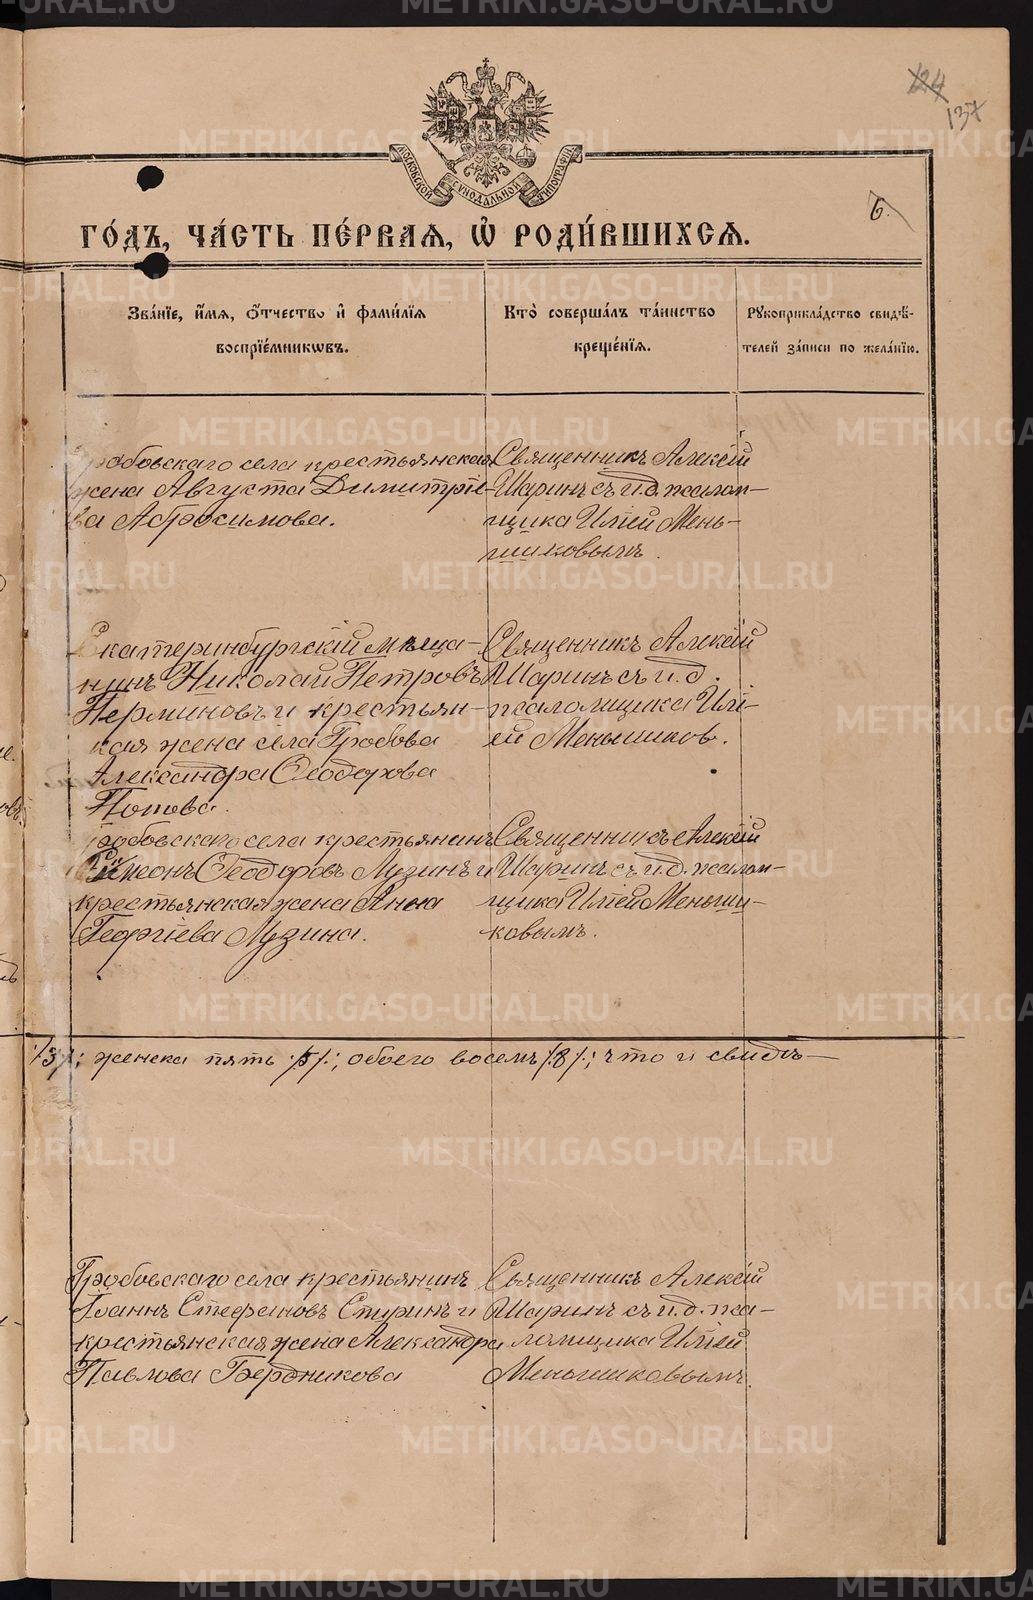 124
137
МОСКОВСКОЙ СѴНОДАЛЬНОЙ ТИПОГРАФІИ
6.
ГО́ДЪ, ЧА́СТЬ ПЕ́РВАѦ, Ѡ҆ РОДИ́ВШИХСѦ.
Зва́нїе, и҆́мѧ, ѻ҆́тчество и҆ фами́лїѧ
воспрїе́мникѡвъ.
Кто̀ соверша́лъ та́инство
креще́нїѧ.
Рꙋкоприкла́дство свидѣ́-
телей за́писи по жела́нїю.
Гробовскаго села крестьянская
жена Августа Димитріе-
ва Абросимова.
Священникъ Алексій
Шаринъ съ и.д. псалом-
щика Иліей Мень-
шиковымъ.
Екатеринбургскій мѣща-
нинъ Николай Петровъ
Перминовъ и крестьян-
кая жена села Гробова
Александра Ѳеодорова
Попова.
Священникъ Алексій
Шаринъ съ и.д.
псаломщика Илі-
ей Меньшиков.
Гробовскаго села крестьянинъ
Симеонъ Ѳеодоровъ Лузинъ и
крестьянская жена Анна
Георгіева Лузина.
Священникъ Алексій
Шаринъ съ и.д. псалом-
щика Иліей Меньши-
ковымъ.
/3/.; женска пять /5/.; обоего восемь /8/.; что и свидѣ-
Гробовскаго села крестьянинъ
Іоаннъ Стефановъ Стуринъ и
крестьянская жена Александра
Павлова Бердникова
Священникъ Алексій
Шаринъ съ и.д. пса-
ломщика Иліей
Меньшиковымъ.
METRIKI.GASO-URAL.RU